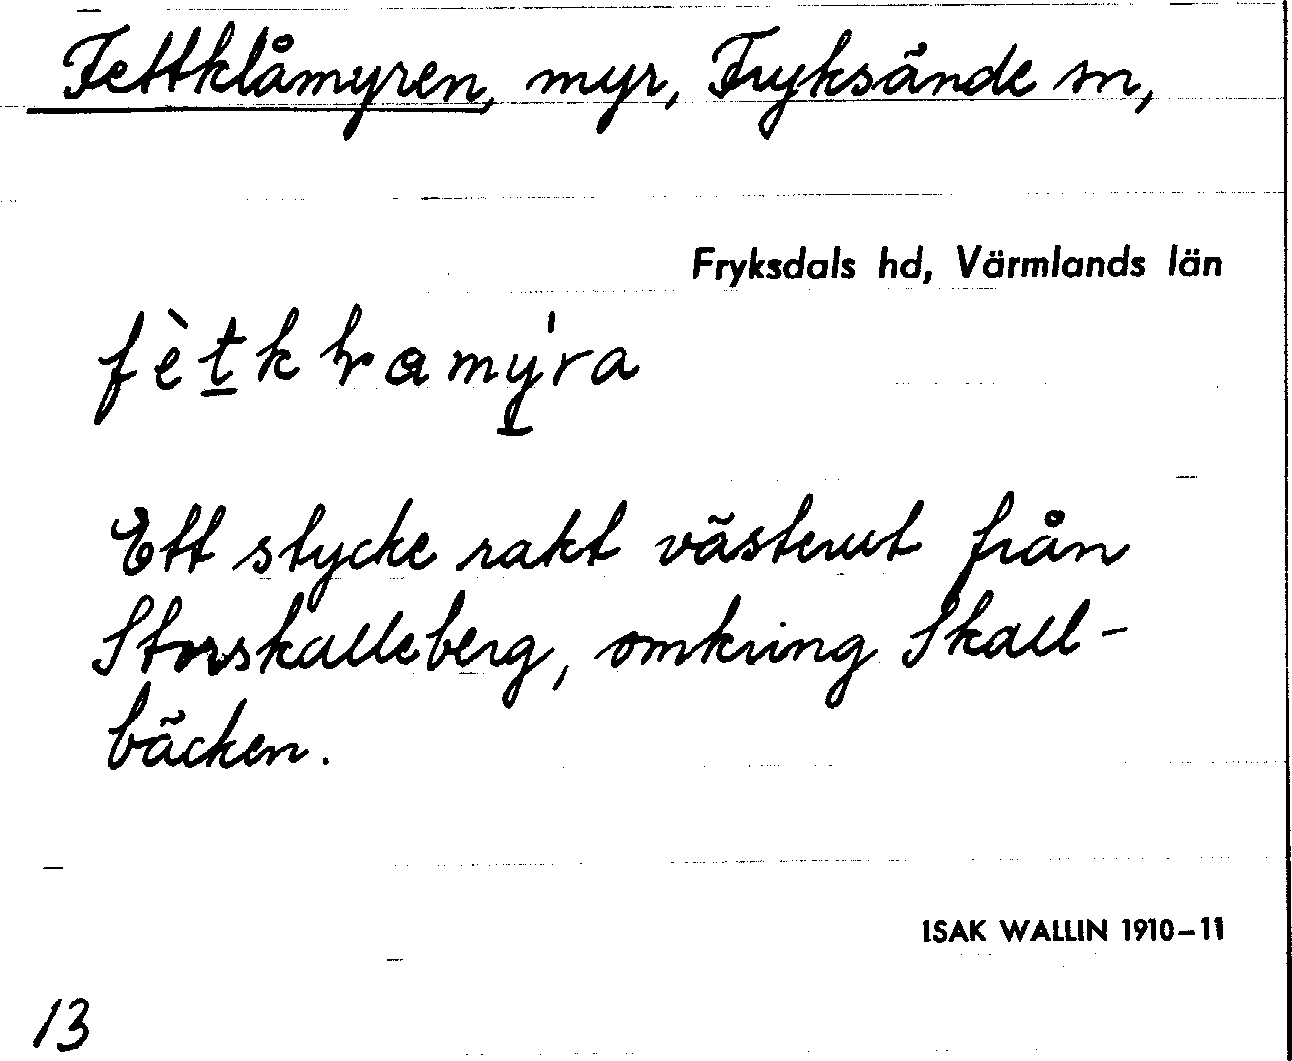 Fettklåmyren, myr, Fryksände sn,
Fryksdals hd, Värmlands län
Ett stycke rakt västerut från
Storskalleberg, omkring Skall-
bäcken.
ISAK WALLIN 1910-11
13